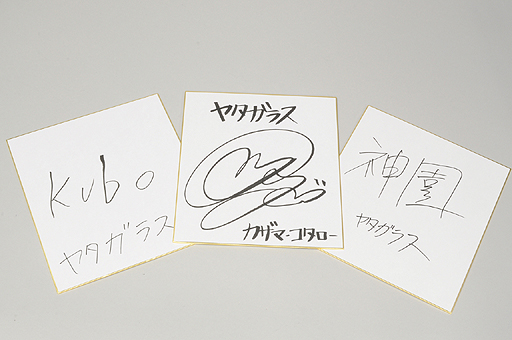 Kubo
ヤタガラス
ヤタガラス
カザマ・コタロー
神園
ヤタガラス